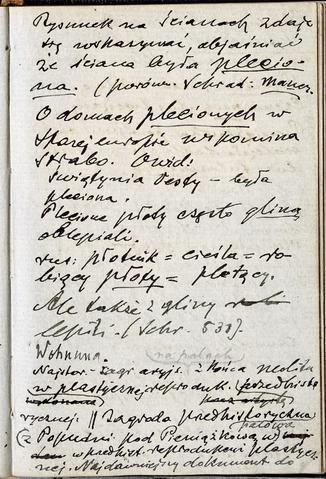 Rysunek na ścianach zdaje
się wskazywać, objaśniać
że ściana była plecio-
na. (porówn. Schrad.
O domach plecionych w
Starej europie wspomina
Strabo. Owid:
Świątynia Vesty – była
pleciona.
Plecione płoty często gliną
oblepiali.
rus: płotnik = cieśla = ro-
biący płoty = plotący.
Ale także z gliny
lepili. (Schr. 531).
na palach
Najstar. zagr aryjs. z końca neolitu
w plastycznej reprodukc. (przedhisto
rycznej. || zagroda przedhistoryczna
palowa
z Popudni pod Pieniążkową w
w przedhist. reprodukcji plastycz
nej. Najdawniejszy dokument do